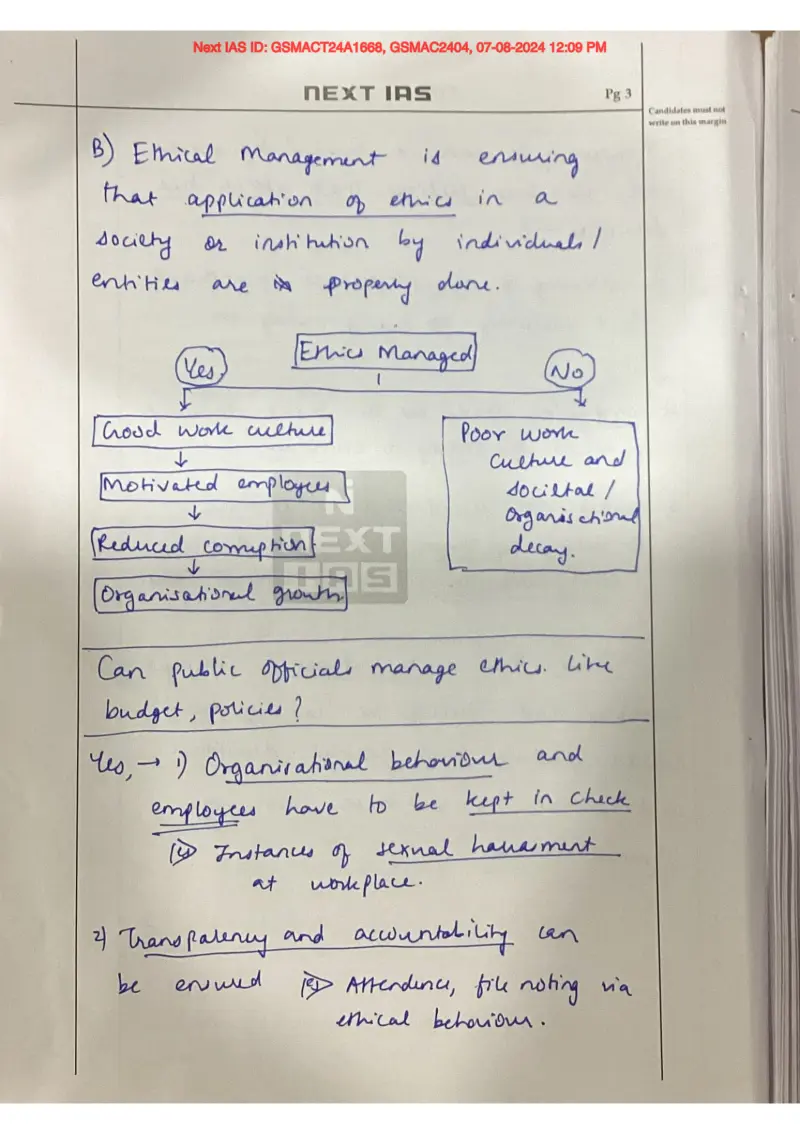 Next IAS ID: GSMACT24A1668, GSMAC2404, 07-08-2024 12:09 PM
NEXT IAS
Pg 3
Candidates must not
write on this margin
B) Ethical Management is ensuring
that application of ethics in a
society or institution by individuals /
entities are properly done.
Ethics Managed
Yes
No
Good work culture
Motivated employees
Reduced corruption
Organisational growth.
Poor work
culture and
societal /
Organisational
decay.
NEXT
IAS
Can public officials manage ethics like
budget, policies?
Yes, → 1) Organisational behaviour and
employees have to be kept in check
Instances of sexual harrasment
at workplace.
2) Transparency and accountability can
be ensured Attendence, file noting via
ethical behaviour.